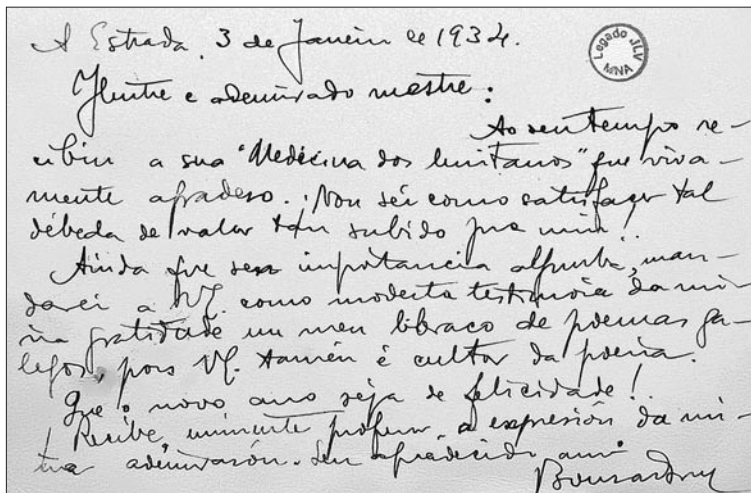 A Estrada, 3 de Janeiro de 1934.
Legado JLV
MNA
Ilustre e ademirado mestre:
Ao seu tempo re-
cibin a sua "Medicina dos lusitanos" que viva-
mente agradeso. Non sei como satisfaçer tal
débeda de valor tan subido pra min!
Ainda que sen importancia algunha, man-
darei a V. como modesta testimoia da mi-
ña gratidade un meu libraco de poemas ga-
legos, pois V. tamén é cultor da poesia.
Que o novo ano seja de felicidade!
Recibe, eminente profesor a expresión da mi-
ña ademirasón. Seu agradecido